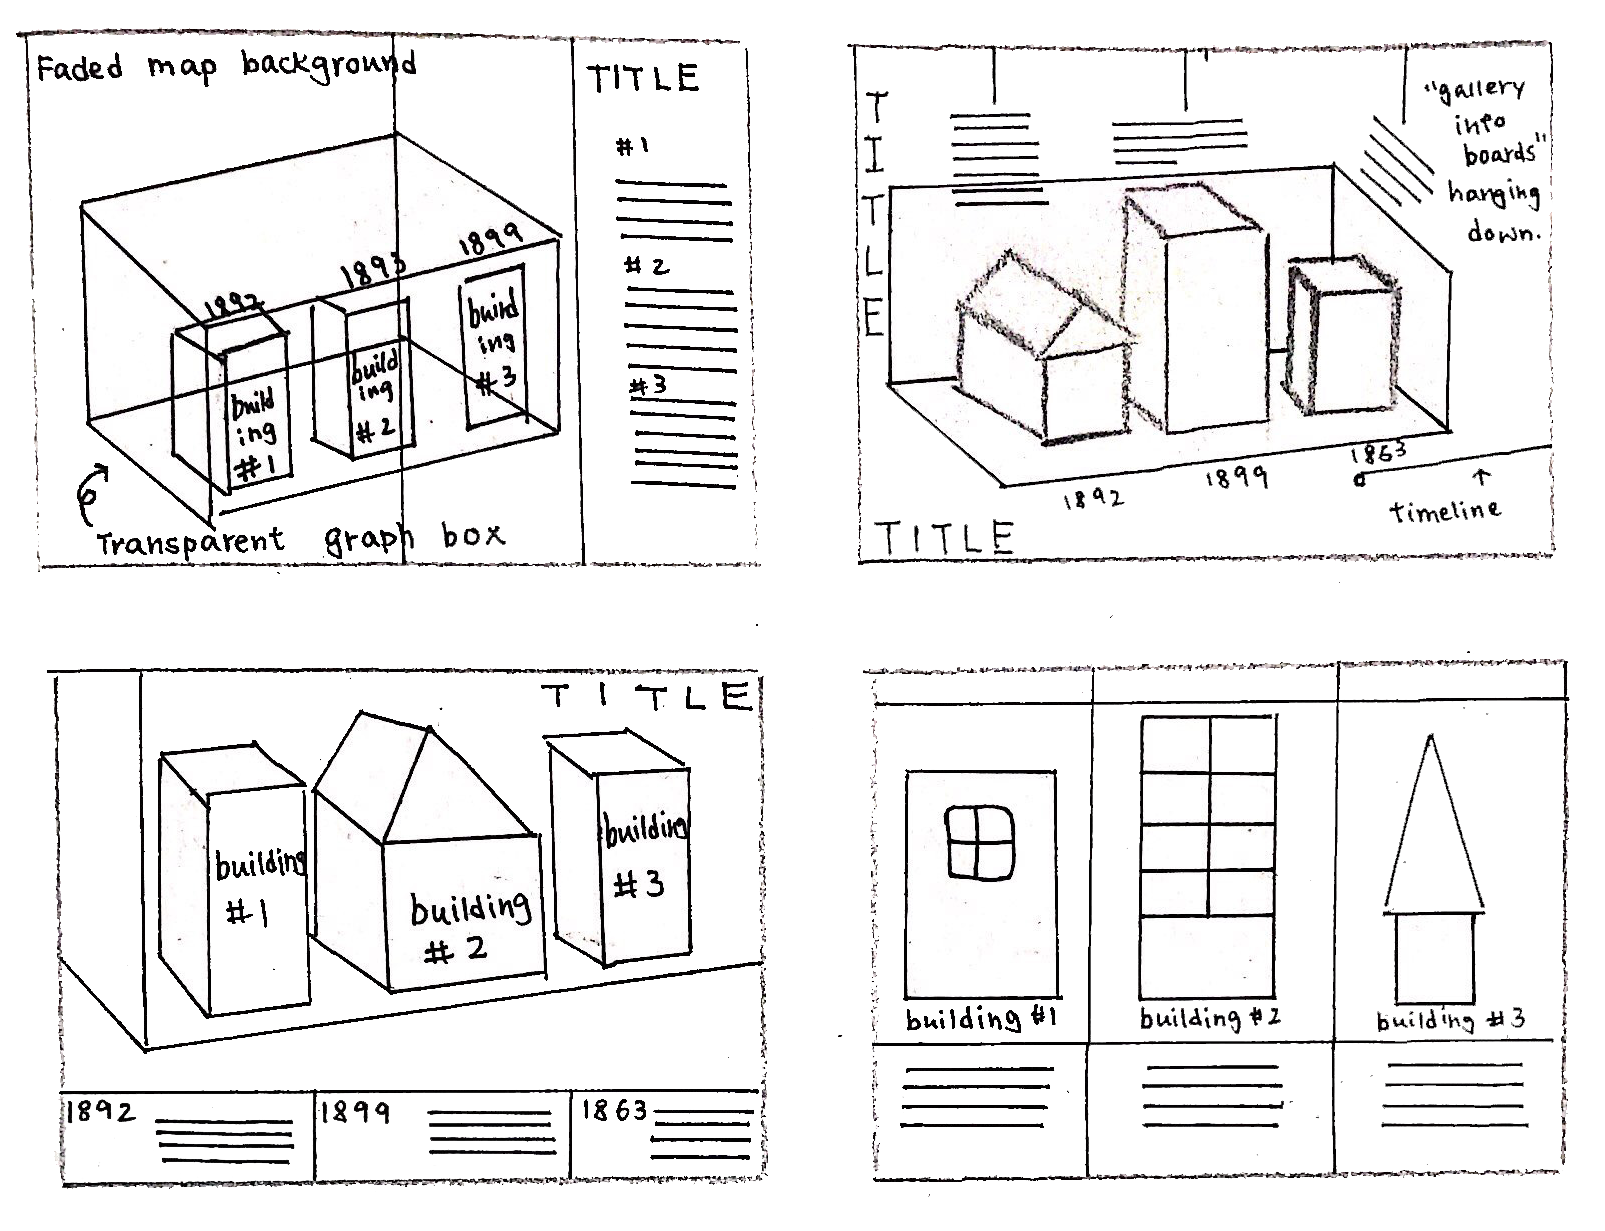 Faded map background
TITLE
#1
#2
#3
1892
1893
1899
build
ing
#1
build
ing
#2
build
ing
#3
Transparent graph box
TITLE
"gallery
info
boards"
hanging
down.
1892
1899
1863
timeline
TITLE
TITLE
building
#1
building
#2
building
#3
1892
1899
1863
building #1
building #2
building #3